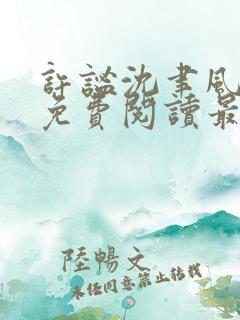 許謐沈聿風
免費閱讀最
陸暢文
未任同意禁止轉載